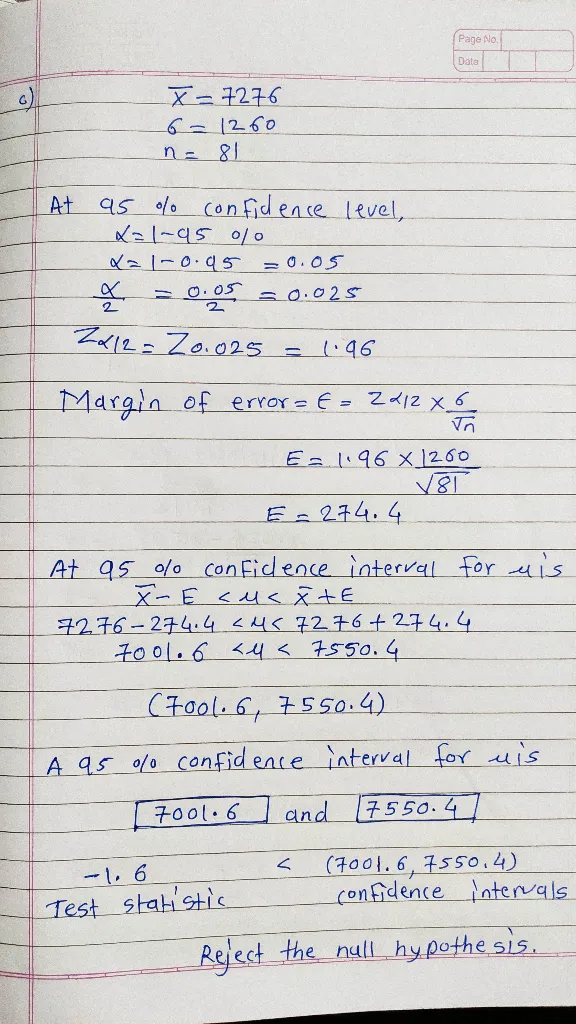 Page No.
Date
c)
x̄ = 7276
6 = 1260
n = 81
At 95 % confidence level,
α = 1-95 %
α = 1-0.95 = 0.05
α/2 = 0.05/2 = 0.025
Zα/2 = Z0.025 = 1.96
Margin of error = E = Zα/2 × 6/√n
E = 1.96 × 1260/√81
E = 274.4
At 95 % confidence interval for μ is
x̄ - E < μ < x̄ + E
7276-274.4 < μ < 7276+274.4
7001.6 < μ < 7550.4
(7001.6, 7550.4)
A 95 % confidence interval for μ is
7001.6 and 7550.4
-1.6 < (7001.6, 7550.4)
Test statistic confidence intervals
Reject the null hypothesis.